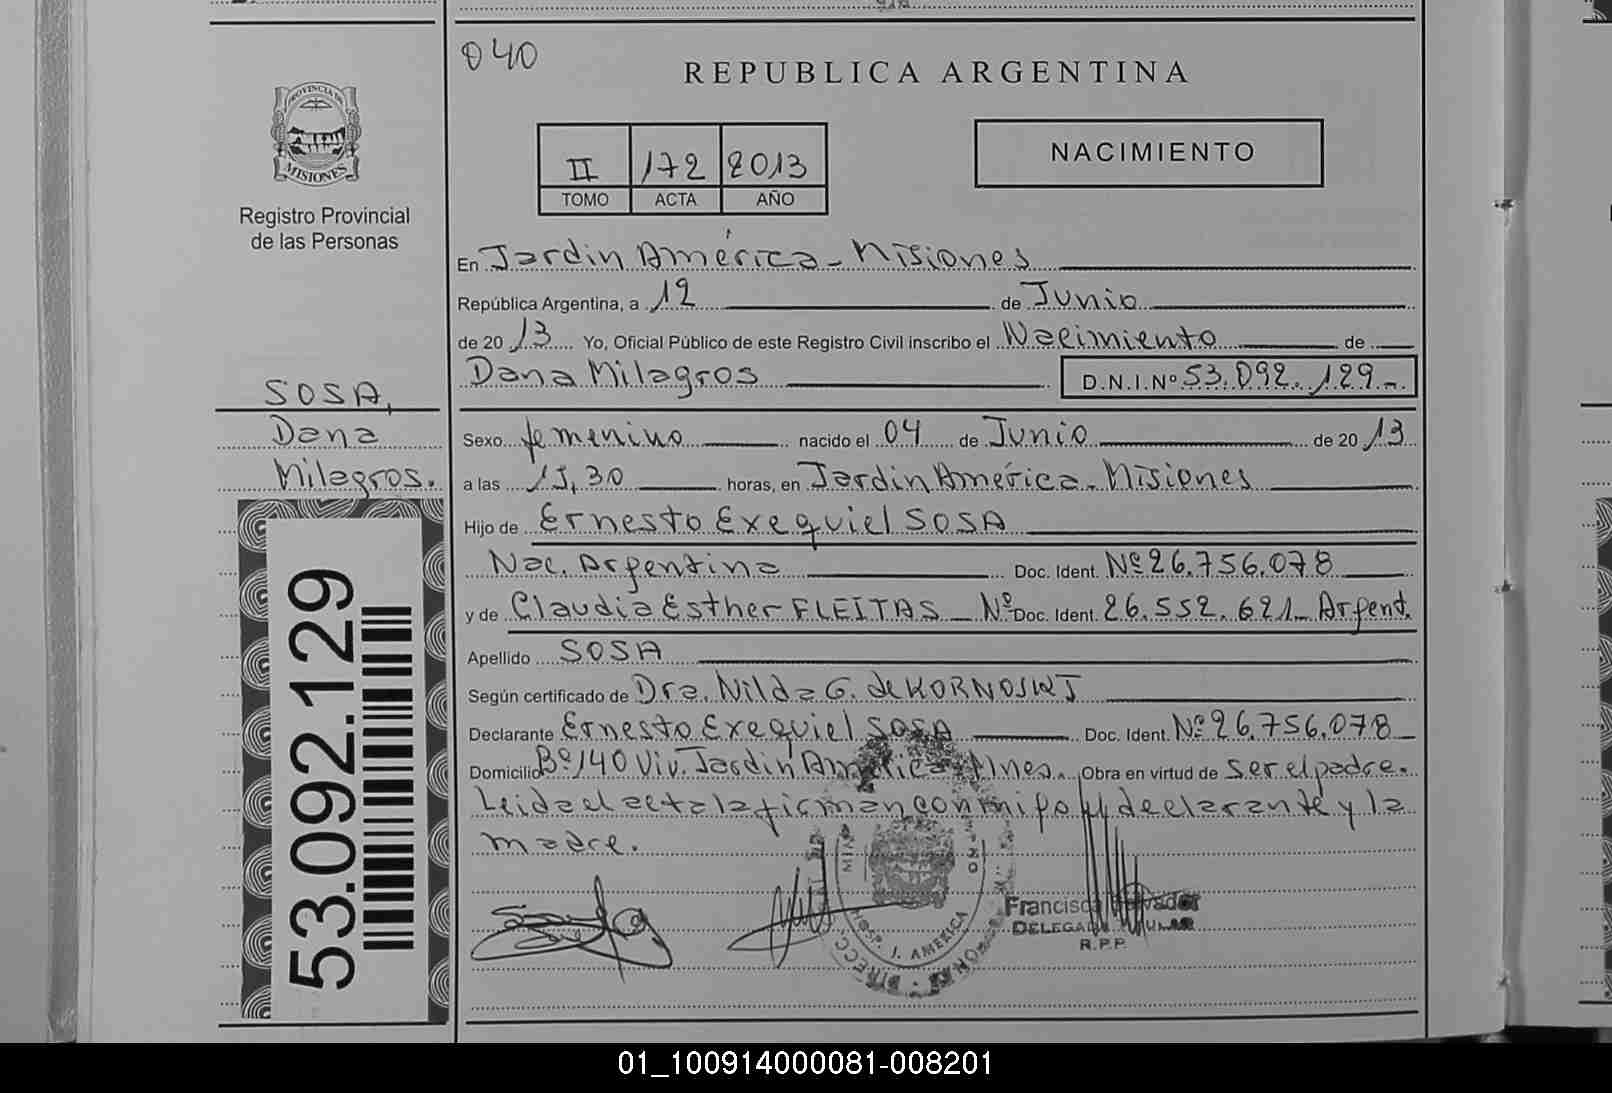 040
REPUBLICA ARGENTINA
PROVINCIA DE
MISIONES
Registro Provincial
de las Personas
II 172 2013
TOMO ACTA AÑO
NACIMIENTO
En Jardin América - Misiones
República Argentina, a 12 de Junio
de 2013 Yo, Oficial Público de este Registro Civil inscribo el Nacimiento de
Dana Milagros D.N.I.Nº 53.092.129-
SOSA,
Dana
Milagros.
Sexo femenino nacido el 04 de Junio de 2013
a las 15,30 horas, en Jardin América - Misiones
Hijo de Ernesto Exequiel SOSA
Nac. Argentina Doc. Ident. Nº 26.756.078
y de Claudia Esther FLEITAS - Nº Doc. Ident. 26.552.621- Argent.
Apellido SOSA
Según certificado de Dra. Nilda G. de KORNOSKI
Declarante Ernesto Exequiel SOSA Doc. Ident. Nº 26.756.078
Domicilio Bº 140 Viv. Jardin América - Mnes. Obra en virtud de ser el padre.
Leida el acta la firman conmigo el declarante y la
madre.
53.092.129
HOSP. J. AMERICA
Francisco Salvador
DELEGADO TITULAR
R.P.P.
01_100914000081-008201